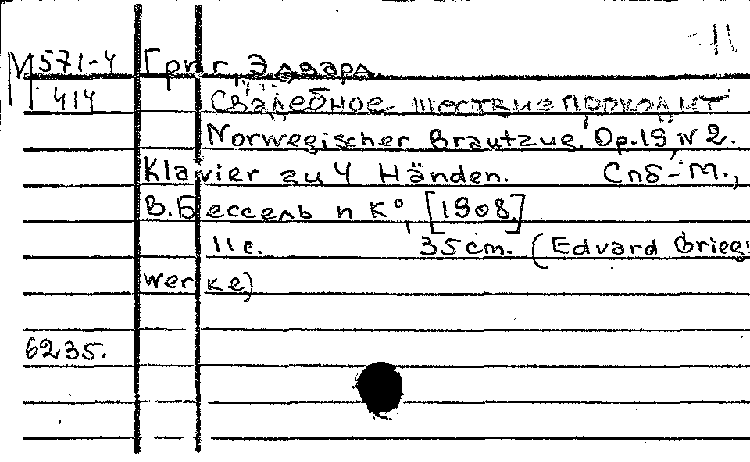 М 571-4 Григ, Эдвард.
414 Свадебное шествие проходит
Norwegischer Brautzug. Op.19, N 2.
Klavier zu 4 Händen. Спб-М.,
В. Бессель и К°, [1908.]
11 с. 35 cm. (Edvard Grieg
werke)
6235.